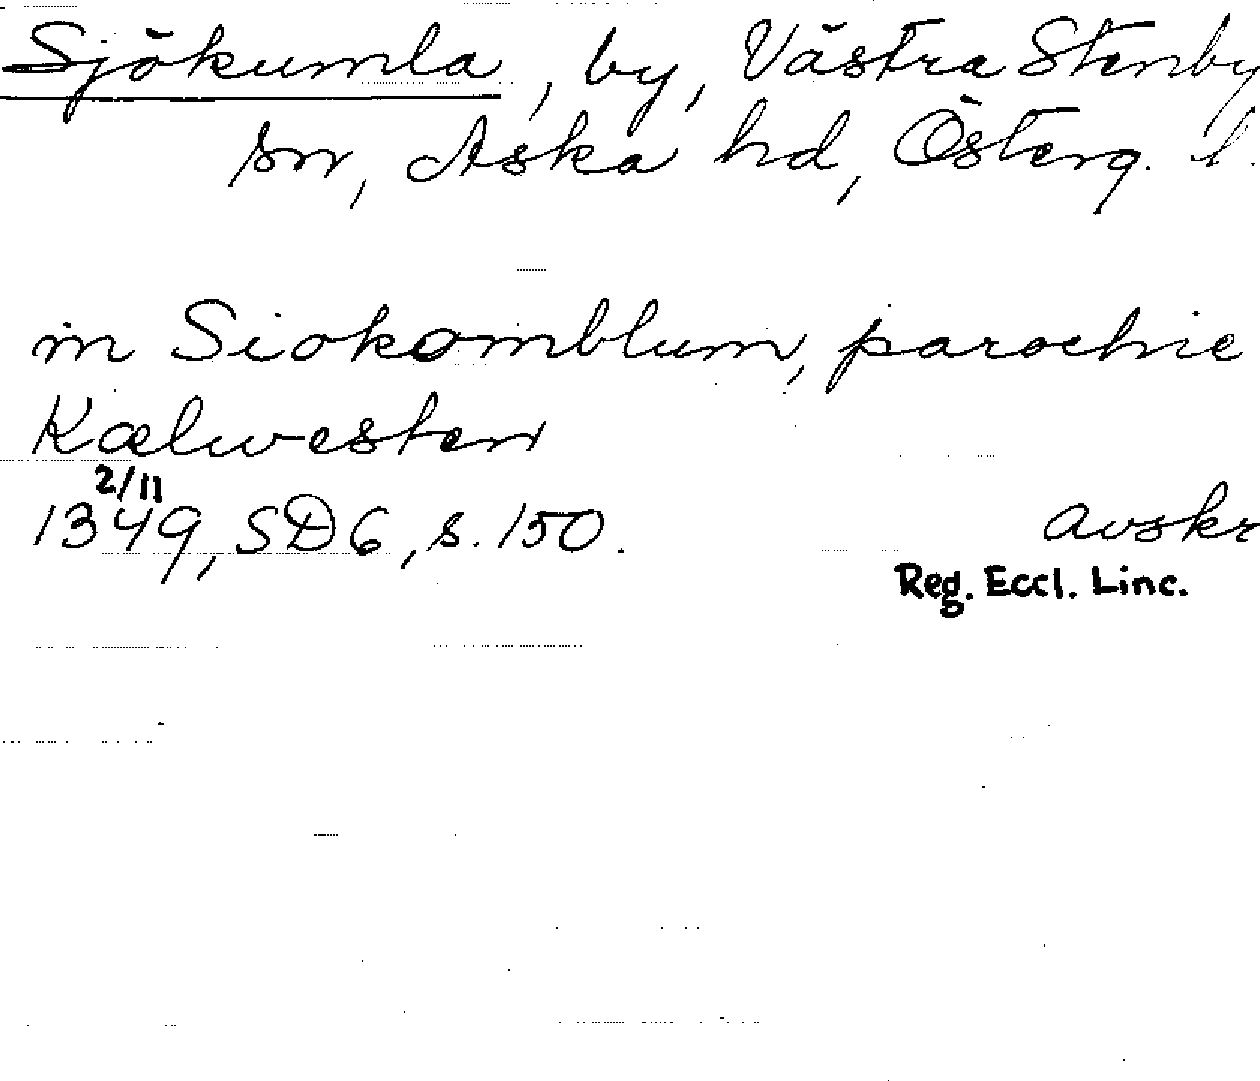 Sjökumla, by, Västra Stenby
sn, Aska hd, Österg. l.
in Siokomblum, parochie
Kælwesten
2/11
1349, SD6, s. 150. avskr
Reg. Eccl. Linc.